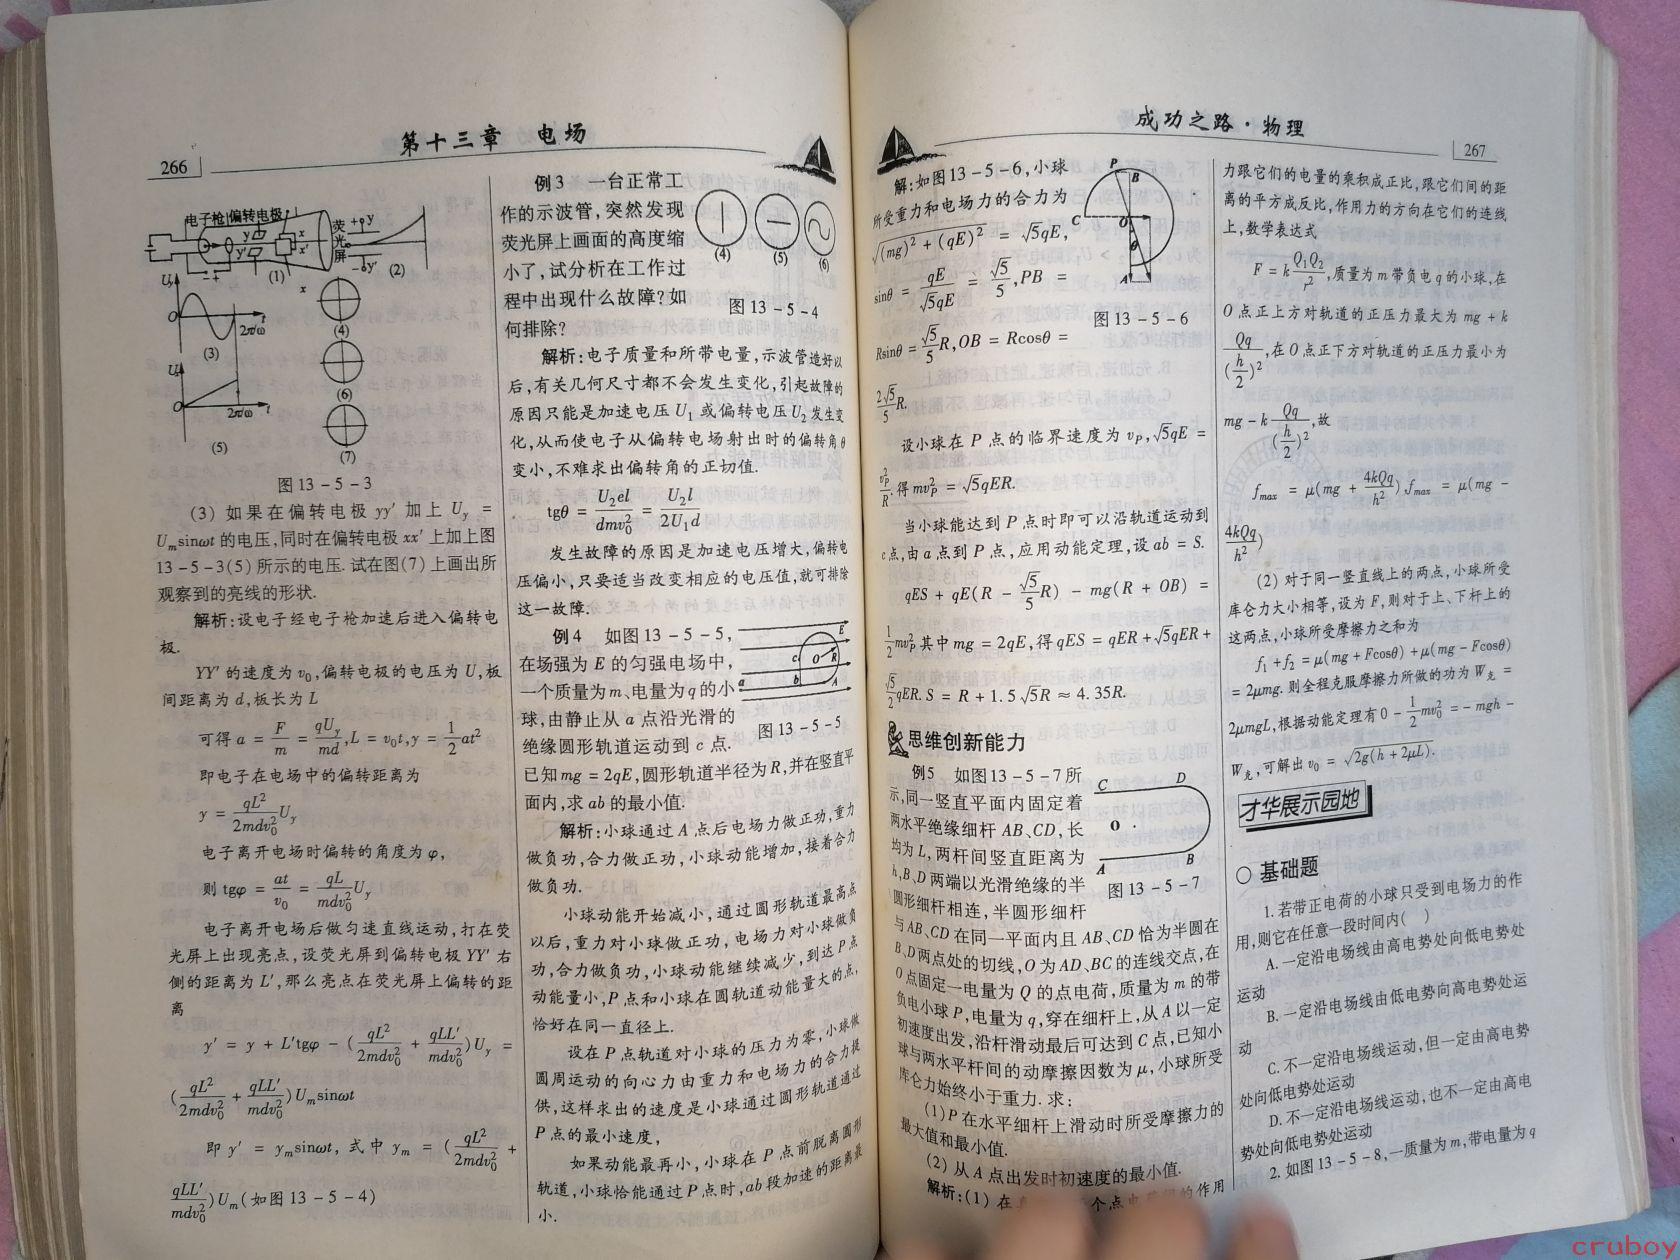 第十三章 电场
266
电子枪 偏转电极
荧
光
屏
+φy
-φy'
y
y'
x
x'
(1)
(2)
Uy
O
t
2π/ω
(3)
x
(4)
(6)
(7)
Ux
O
2π/ω
t
(5)
图 13-5-3
(3) 如果在偏转电极 yy′ 加上 Uy =
Umsinωt 的电压,同时在偏转电极 xx′ 上加上图
13-5-3(5) 所示的电压. 试在图(7) 上画出所
观察到的亮线的形状.
解析:设电子经电子枪加速后进入偏转电
极.
YY′ 的速度为 v0,偏转电极的电压为 U,板
间距离为 d,板长为 L
可得 a = F/m = qUy/md, L = v0t, y = 1/2 at²
即电子在电场中的偏转距离为
y = qL²/2mdv0² Uy
电子离开电场时偏转的角度为 φ,
则 tgφ = at/v0 = qL/mdv0² Uy
电子离开电场后做匀速直线运动,打在荧
光屏上出现亮点,设荧光屏到偏转电极 YY′ 右
侧的距离为 L′,那么亮点在荧光屏上偏转的距
离
y′ = y + L′tgφ - (qL²/2mdv0² + qLL′/mdv0²)Uy =
(qL²/2mdv0² + qLL′/mdv0²)Umsinωt
即 y′ = ymsinωt, 式中 ym = (qL²/2mdv0² +
qLL′/mdv0²)Um(如图 13-5-4)
例3 一台正常工
作的示波管,突然发现
荧光屏上画面的高度缩
小了,试分析在工作过
程中出现什么故障?如
何排除?
(4)
(5)
(6)
图 13-5-4
解析:电子质量和所带电量,示波管造好以
后,有关几何尺寸都不会发生变化,引起故障的
原因只能是加速电压 U1 或偏转电压 U2 发生变
化,从而使电子从偏转电场射出时的偏转角 θ
变小,不难求出偏转角的正切值.
tgθ = U2el/dmv0² = U2l/2U1d
发生故障的原因是加速电压增大,偏转电
压偏小,只要适当改变相应的电压值,就可排除
这一故障.
例4 如图 13-5-5,
在场强为 E 的匀强电场中,
一个质量为 m、电量为 q 的小
球,由静止从 a 点沿光滑的
绝缘圆形轨道运动到 c 点.
E
c
O
R
a
b
A
图 13-5-5
已知 mg = 2qE,圆形轨道半径为 R,并在竖直平
面内,求 ab 的最小值.
解析:小球通过 A 点后电场力做正功,重力
做负功,合力做正功,小球动能增加,接着合力
做负功.
小球动能开始减小,通过圆形轨道最高点
以后,重力对小球做正功,电场力对小球做负
功,合力做负功,小球动能继续减少,到达 P 点
动能量小,P 点和小球在圆轨道动能量大的点,
恰好在同一直径上.
设在 P 点轨道对小球的压力为零,小球做
圆周运动的向心力由重力和电场力的合力提
供,这样求出的速度是小球通过圆形轨道通过
P 点的最小速度,
如果动能最再小,小球在 P 点前脱离圆形
轨道,小球恰能通过 P 点时,ab 段加速的距离最
小.
成功之路·物理
267
解:如图 13-5-6,小球
所受重力和电场力的合力为
√((mg)² + (qE)²) = √5qE,
sinθ = qE/√5qE = √5/5, PB =
Rsinθ = √5/5 R, OB = Rcosθ =
2√5/5 R.
P
B
C
O
θ
A
图 13-5-6
设小球在 P 点的临界速度为 vP, √5qE =
vP²/R. 得 mvP² = √5qER.
当小球能达到 P 点时即可以沿轨道运动到
c 点,由 a 点到 P 点,应用动能定理,设 ab = S.
qES + qE(R - √5/5 R) - mg(R + OB) =
1/2 mvP². 其中 mg = 2qE,得 qES = qER + √5qER +
√5/2 qER. S = R + 1.5√5R ≈ 4.35R.
思维创新能力
例5 如图 13-5-7 所
示,同一竖直平面内固定着
两水平绝缘细杆 AB、CD,长
均为 L,两杆间竖直距离为
h,B、D 两端以光滑绝缘的半
圆形细杆相连,半圆形细杆
C
D
O
B
A
图 13-5-7
与 AB、CD 在同一平面内且 AB、CD 恰为半圆在
B、D 两点处的切线,O 为 AD、BC 的连线交点,在
O 点固定一电量为 Q 的点电荷,质量为 m 的带
负电小球 P,电量为 q,穿在细杆上,从 A 以一定
初速度出发,沿杆滑动最后可达到 C 点,已知小
球与两水平杆间的动摩擦因数为 μ,小球所受
库仑力始终小于重力. 求:
(1) P 在水平细杆上滑动时所受摩擦力的
最大值和最小值.
(2) 从 A 点出发时初速度的最小值.
解析:(1) 在 个点电荷间的作用
力跟它们的电量的乘积成正比,跟它们间的距
离的平方成反比,作用力的方向在它们的连线
上,数学表达式
F = k Q1Q2/r²,质量为 m 带负电 q 的小球,在
O 点正上方对轨道的正压力最大为 mg + k
Qq/(h/2)²,在 O 点正下方对轨道的正压力最小为
mg - k Qq/(h/2)²,故
fmax = μ(mg + 4kQq/h²) fmax = μ(mg -
4kQq/h²)
(2) 对于同一竖直线上的两点,小球所受
库仑力大小相等,设为 F,则对于上、下杆上的
这两点,小球所受摩擦力之和为
f1 + f2 = μ(mg + Fcosθ) + μ(mg - Fcosθ)
= 2μmg. 则全程克服摩擦力所做的功为 W克 =
2μmgL,根据动能定理有 0 - 1/2 mv0² = - mgh -
W克,可解出 v0 = √(2g(h + 2μL)).
才华展示园地
○ 基础题
1. 若带正电荷的小球只受到电场力的作
用,则它在任意一段时间内( )
A. 一定沿电场线由高电势处向低电势处
运动
B. 一定沿电场线由低电势向高电势处运
动
C. 不一定沿电场线运动,但一定由高电势
处向低电势处运动
D. 不一定沿电场线运动,也不一定由高电
势处向低电势处运动
2. 如图 13-5-8,一质量为 m,带电量为 q
cruboy